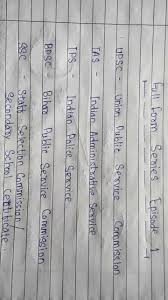 Full Form Series Episode 1
UPSC - Union Public Service Commission
IAS - Indian Administrative Service
IPS - Indian Police Service
BPSC - Bihar Public Service Commission
SSC - Staff Selection Commission/
Secondary School Certificate.